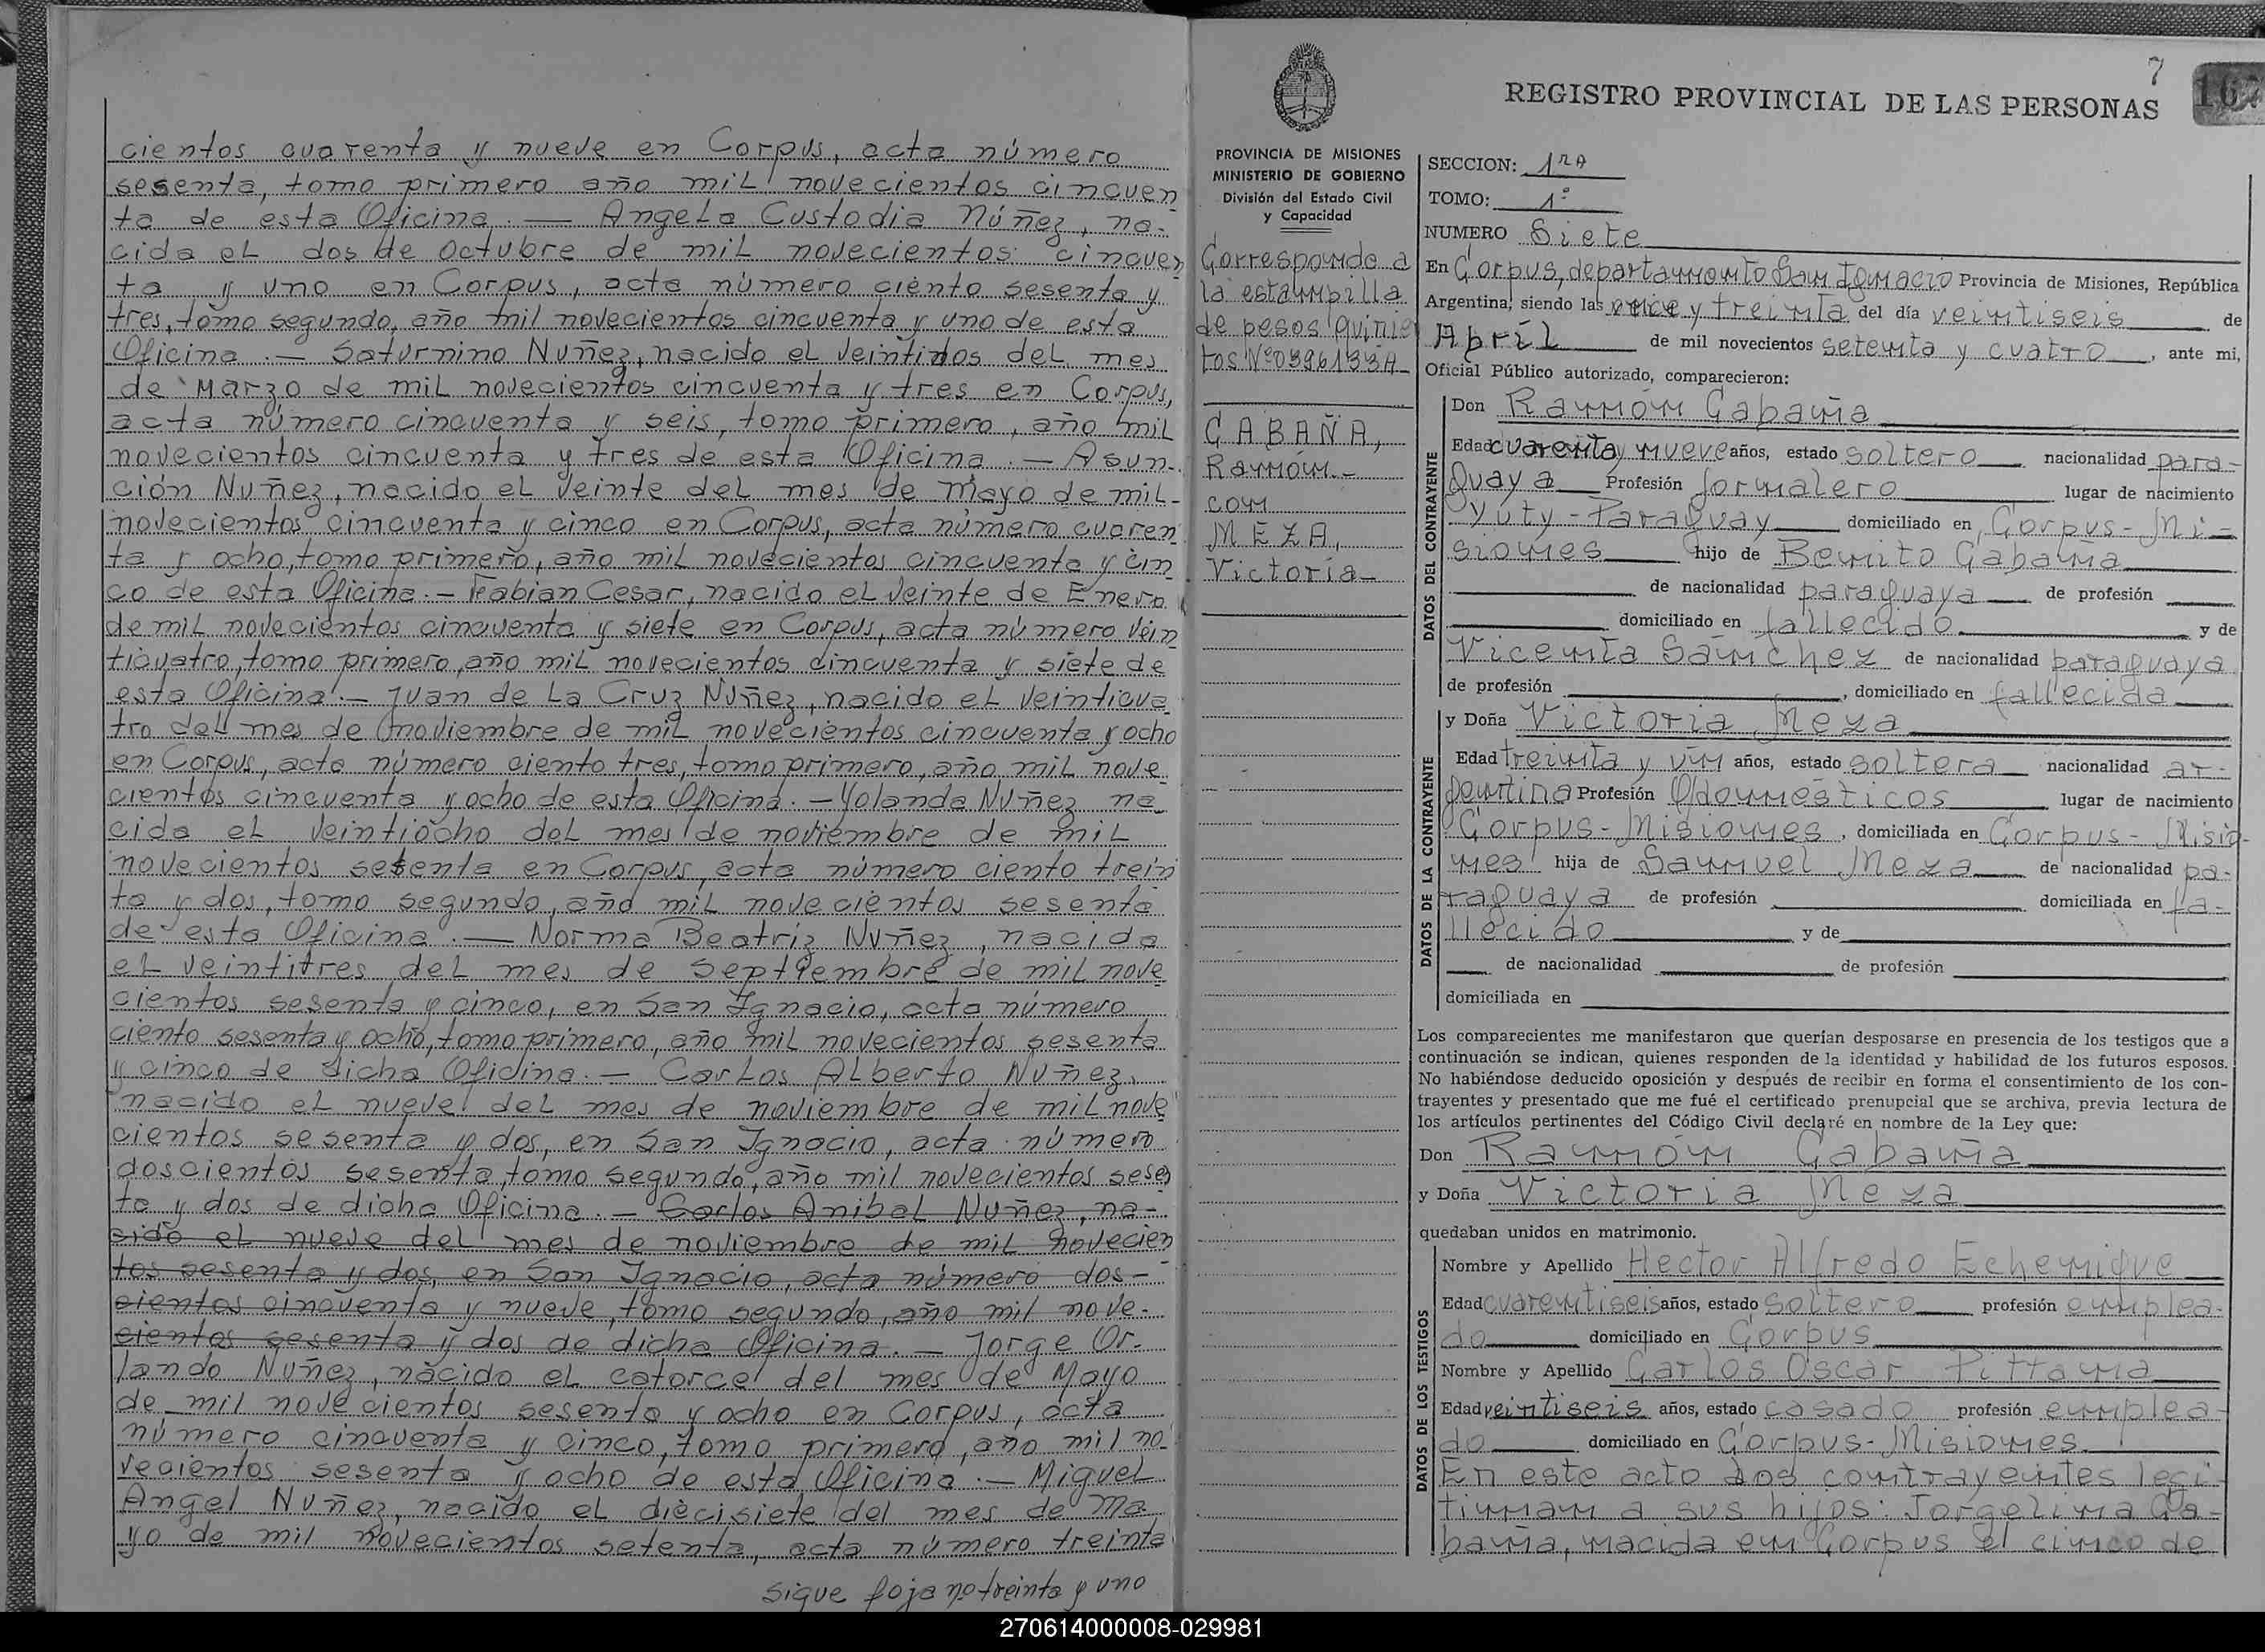 cientos cuarenta y nueve en Corpus, acta número
sesenta, tomo primero año mil novecientos cincuen
ta de esta Oficina. — Angela Custodia Núñez, na-
cida el dos de octubre de mil novecientos cincuen
ta y uno en Corpus, acta número ciento sesenta y
tres, tomo segundo, año mil novecientos cincuenta y uno de esta
Oficina. — Saturnino Nuñez, nacido el veintidos del mes
de Marzo de mil novecientos cincuenta y tres en Corpus,
acta número cincuenta y seis, tomo primero, año mil
novecientos cincuenta y tres de esta Oficina. — Asun-
ción Nuñez, nacido el veinte del mes de Mayo de mil-
novecientos cincuenta y cinco en Corpus, acta número cuaren
ta y ocho, tomo primero, año mil novecientos cincuenta y cin
co de esta Oficina. — Fabian Cesar, nacido el veinte de Enero
de mil novecientos cincuenta y siete en Corpus, acta número vein
ticuatro, tomo primero, año mil novecientos cincuenta y siete de
esta Oficina. — Juan de La Cruz Nuñez, nacido el veinticua
tro del mes de noviembre de mil novecientos cincuenta y ocho
en Corpus, acta número ciento tres, tomo primero, año mil nove
cientos cincuenta y ocho de esta Oficina. — Yolanda Nuñez na
cida el veintiocho del mes de noviembre de mil
novecientos sesenta en Corpus, acta número ciento trein
ta y dos, tomo segundo, año mil novecientos sesenta
de esta Oficina. — Norma Beatriz Nuñez, nacida
el veintitres del mes de Septiembre de mil nove
cientos sesenta y cinco, en San Ignacio, acta número
ciento sesenta y ocho, tomo primero, año mil novecientos sesenta
y cinco de dicha Oficina. — Carlos Alberto Nuñez,
nacido el nueve del mes de noviembre de mil nove
cientos sesenta y dos, en San Ignacio, acta número
doscientos sesenta, tomo segundo, año mil novecientos sesen
ta y dos de dicha Oficina. — Carlos Anibal Nuñez, na-
cido el nueve del mes de noviembre de mil novecien
tos sesenta y dos, en San Ignacio, acta número dos-
cientos cincuenta y nueve, tomo segundo, año mil nove-
cientos sesenta y dos de dicha Oficina. — Jorge Or-
lando Nuñez, nacido el catorce del mes de Mayo
de mil novecientos sesenta y ocho en Corpus, acta
número cincuenta y cinco, tomo primero, año mil no
vecientos sesenta y ocho de esta Oficina. — Miguel
Angel Nuñez, nacido el diecisiete del mes de Ma
yo de mil novecientos setenta, acta número treinta
sigue foja nº treinta y uno
7
REGISTRO PROVINCIAL DE LAS PERSONAS
PROVINCIA DE MISIONES
MINISTERIO DE GOBIERNO
División del Estado Civil
y Capacidad
Corresponde a
la estampilla
de pesos quinien
tos Nº0396133A
CABAÑA,
Ramón.-
con
MEZA,
Victoria-
SECCION: 1ra
TOMO: 1º
NUMERO Siete
En Corpus, departamento San Ignacio Provincia de Misiones, República
Argentina, siendo las once y treinta del día veintiseis de
Abril de mil novecientos setenta y cuatro, ante mi,
Oficial Público autorizado, comparecieron:
DATOS DEL CONTRAYENTE
Don Ramón Cabaña
Edad cuarenta y nueve años, estado soltero nacionalidad para-
guaya Profesión jornalero lugar de nacimiento
Yuty - Paraguay domiciliado en Corpus - Mi-
siones hijo de Benito Cabaña
de nacionalidad paraguaya de profesión
domiciliado en fallecido y de
Vicenta Sánchez de nacionalidad paraguaya
de profesión , domiciliado en fallecida
DATOS DE LA CONTRAYENTE
y Doña Victoria Meza
Edad treinta y un años, estado soltera nacionalidad ar-
gentina Profesión Qdomésticos lugar de nacimiento
Corpus - Misiones, domiciliada en Corpus - Misio-
nes hija de Samuel Meza de nacionalidad pa-
raguaya de profesión domiciliada en fa-
llecido y de
de nacionalidad de profesión
domiciliada en
Los comparecientes me manifestaron que querían desposarse en presencia de los testigos que a
continuación se indican, quienes responden de la identidad y habilidad de los futuros esposos.
No habiéndose deducido oposición y después de recibir en forma el consentimiento de los con-
trayentes y presentado que me fué el certificado prenupcial que se archiva, previa lectura de
los artículos pertinentes del Código Civil declaré en nombre de la Ley que:
Don Ramón Cabaña
y Doña Victoria Meza
quedaban unidos en matrimonio.
DATOS DE LOS TESTIGOS
Nombre y Apellido Hector Alfredo Echenique
Edad cuarentiseis años, estado soltero profesión emplea-
do domiciliado en Corpus
Nombre y Apellido Carlos Oscar Pittana
Edad veintiseis años, estado casado profesión emplea-
do domiciliado en Corpus - Misiones
En este acto los contrayentes legi-
timan a sus hijos: Jorgelina Ca-
baña, nacida en Corpus el cinco de
270614000008-029981